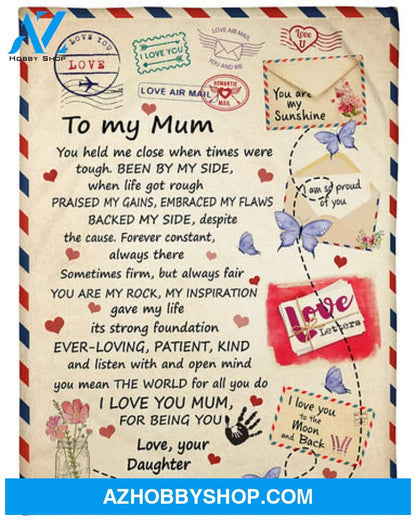 AZ
HOBBY SHOP
I LOVE YOU
LOVE
I LOVE YOU
LOVE AIR MAIL
YOU AND ME
Love
U
LOVE AIR MAIL
ROMANTIC
MAIL
You are
my
Sunshine
To my Mum
You held me close when times were
tough. BEEN BY MY SIDE,
when life got rough
PRAISED MY GAINS, EMBRACED MY FLAWS
BACKED MY SIDE, despite
the cause. Forever constant,
always there
Sometimes firm, but always fair
YOU ARE MY ROCK, MY INSPIRATION
gave my life
its strong foundation
EVER-LOVING, PATIENT, KIND
and listen with and open mind
you mean THE WORLD for all you do
I LOVE YOU MUM,
FOR BEING YOU
Love, your
Daughter
I am so proud
of you
Love
Letters
I love you
to the
Moon
and Back
AZHOBBYSHOP.COM